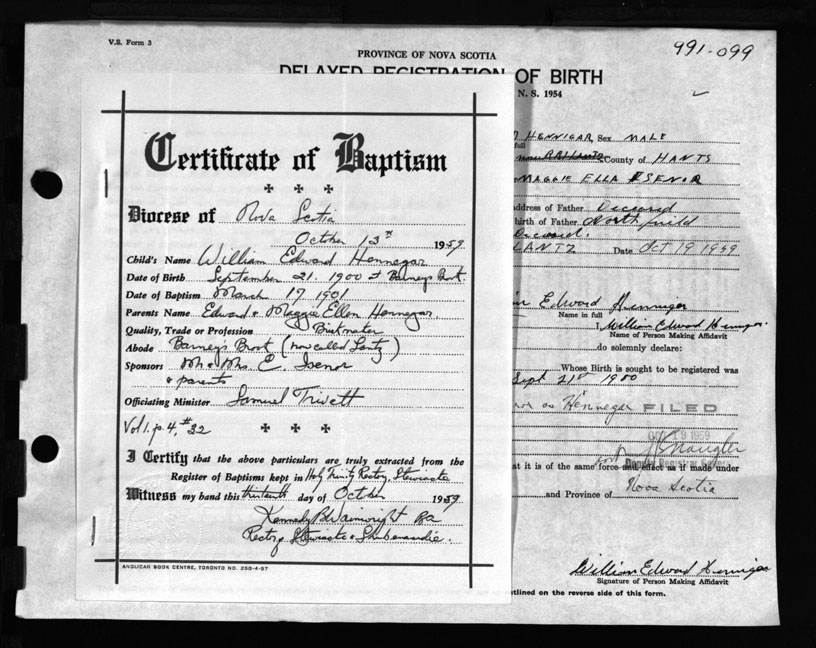 V.S. Form 3
991-099
PROVINCE OF NOVA SCOTIA
DELAYED REGISTRATION OF BIRTH
N. S. 1954
Certificate of Baptism
Diocese of Nova Scotia
October 13th 1959
Child's Name William Edward Hennegar
Date of Birth September 21. 1900 at Barney's Brook.
Date of Baptism March 17 1901
Parents Name Edward & Maggie Ellen Hennegar.
Quality, Trade or Profession Brickmaker
Abode Barney's Brook (now called Lantz)
Sponsors Mr & Mrs. E. Isenor
& parents
Officiating Minister Samuel Trivett
Vol 1. p. 4, #32
I Certify that the above particulars are truly extracted from the
Register of Baptisms kept in Holy Trinity Rectory, Stewiacke
Witness my hand this thirteenth day of October 1959
Kennedy B. Wainwright BA
Rector of Stewiacke & Shubenacadie.
ANGLICAN BOOK CENTRE, TORONTO NO. 250-4-57
HENNIGAR Sex MALE
full
County of HANTS
MAGGIE ELLA ISENOR
address of Father Deceased
birth of Father North field
Deceased.
LANTZ Date Oct 19 1959
Edward Hennigar
Name in full
I, William Edward Hennigar.
Name of Person Making Affidavit
do solemnly declare:
Whose Birth is sought to be registered was
Sept 21st 1900
as Hennegar FILED
OCT 19 1959
at it is of the same force and effect as if made under
and Province of Nova Scotia
William Edward Hennigar
Signature of Person Making Affidavit
utlined on the reverse side of this form.